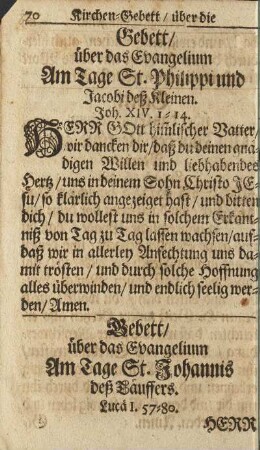 70 Kirchen-Gebett / über die
Gebett/
über das Evangelium
Am Tage St. Philippi und
Jacobi deß Kleinen.
Joh. XIV. 1-14.
HERR GOtt himlischer Vatter/
wir dancken dir/daß du deinen gnä-
digen Willen und liebhabendes
Hertz/uns in deinem Sohn Christo JE-
su/so klärlich angezeiget hast/und bitten
dich/du wollest uns in solchem Erkänt-
niß von Tag zu Tag lassen wachsen/auf-
daß wir in allerley Anfechtung uns da-
mit trösten/und durch solche Hoffnung
alles überwinden/und endlich seelig wer-
den/Amen.
Gebett/
über das Evangelium
Am Tage St. Johannis
deß Täuffers.
Lucä I. 57-80.
HERR